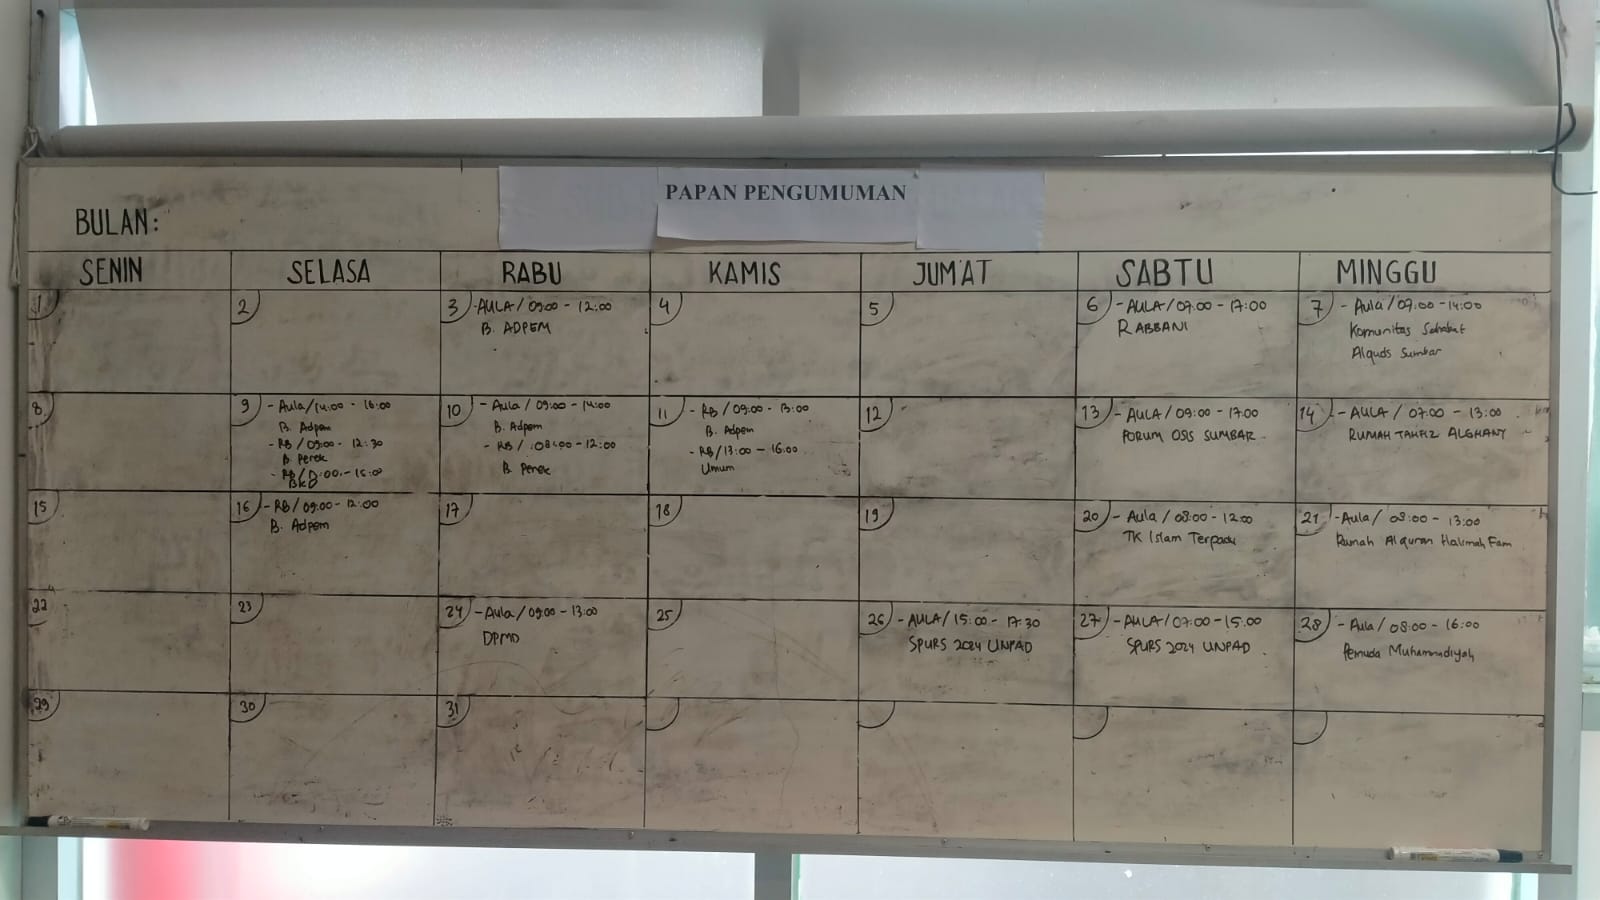 PAPAN PENGUMUMAN
BULAN:
SENIN
SELASA
RABU
KAMIS
JUM'AT
SABTU
MINGGU
1
2
3 - AULA / 09:00 - 12:00
B. ADPEM
4
5
6 - AULA / 07:00 - 17:00
RABBANI
7 - Aula / 07.00 - 14:00
Komunitas Sahabat
Alquds Sumbar
8
9 - Aula / 14:00 - 16:00
B. Adpem
- RB / 09:00 - 12:30
B. Perek
- RB / - 15:00
BKD
10 - Aula / 09:00 - 14:00
B. Adpem
- RB / 08:00 - 12:00
B. Perek
11 - RB / 09:00 - 13:00
B. Adpem
- RB / 13:00 - 16:00
Umum
12
13 - AULA / 09:00 - 17.00
FORUM OSIS SUMBAR
14 - AULA / 07.00 - 13:00
RUMAH TAHFIZ ALGHANY
15
16 - RB / 09:00 - 12:00
B. Adpem
17
18
19
20 - Aula / 08:00 - 12:00
TK Islam Terpadu
21 - Aula / 08:00 - 13:00
Rumah Alquran Halimah Fam
22
23
24 - Aula / 09:00 - 13:00
DPMD
25
26 - AULA / 15:00 - 17.30
SPURS 2024 UNPAD
27 - AULA / 07:00 - 15.00
SPURS 2024 UNPAD
28 - Aula / 08:00 - 16:00
Pemuda Muhammadiyah
29
30
31